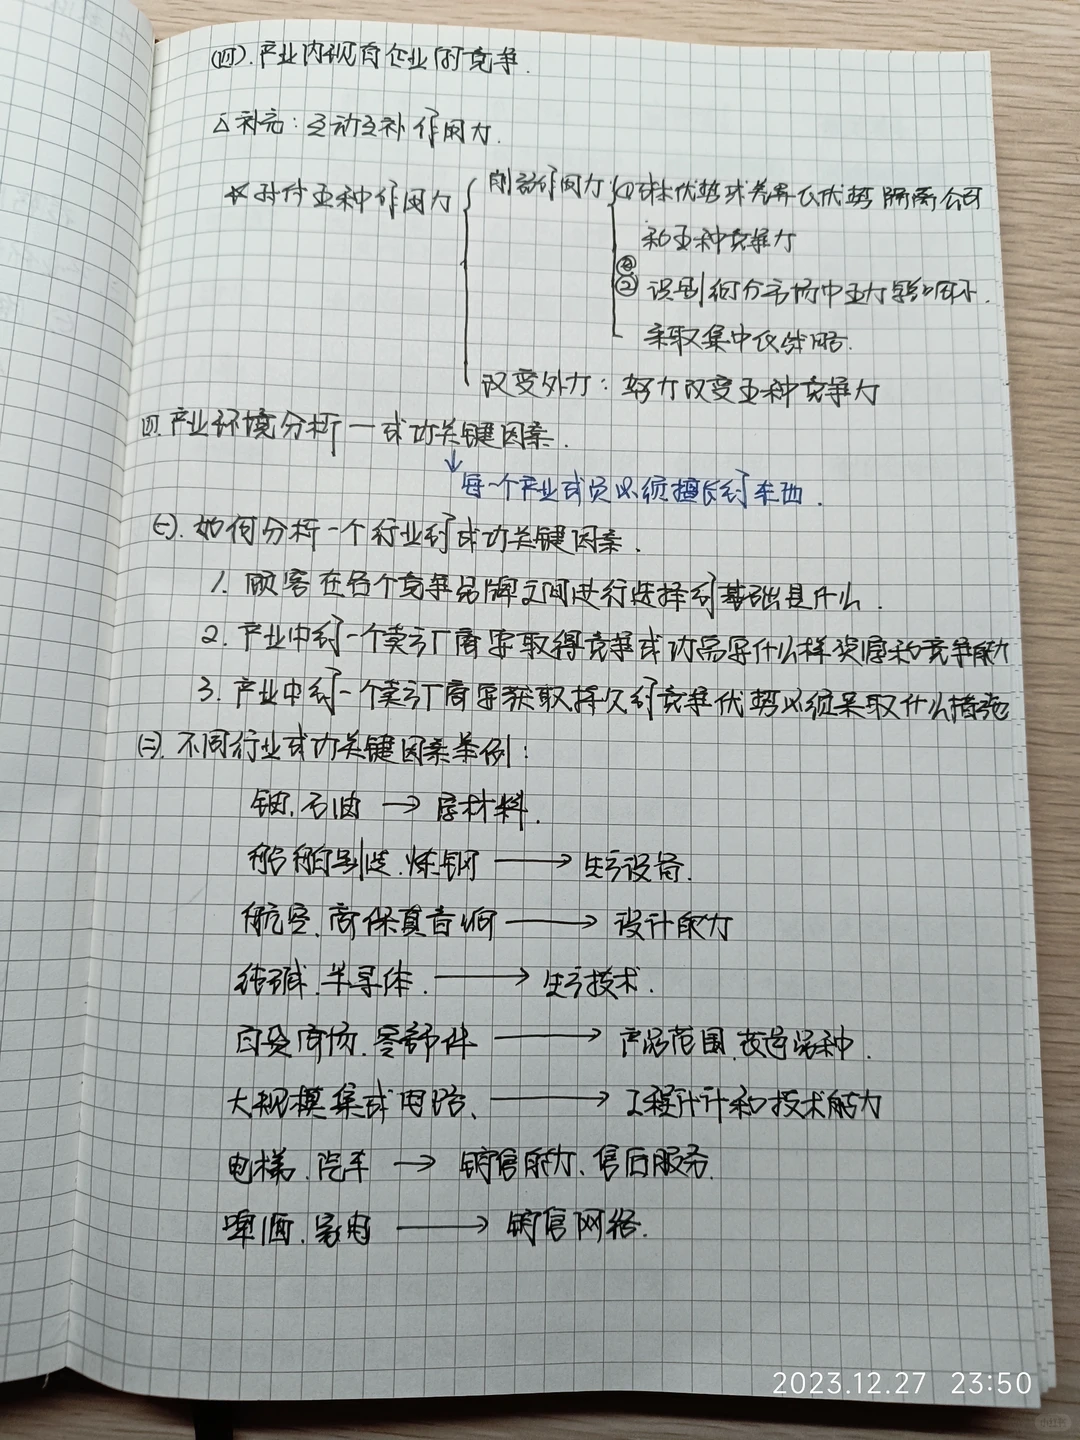 (四).产业内现有企业的竞争.
△补充:互动互补作用力.
*对付五种作用力 削弱作用力 ①成本优势或差异化优势隔离公司
和五种竞争力
② 识别细分市场中五力影响不同.
采取集中化战略.
改变外力:努力改变五种竞争力
四.产业环境分析一成功关键因素.
↓每一个产业成员必须擅长的东西.
(一).如何分析一个行业的成功关键因素.
1.顾客在各个竞争品牌之间进行选择的基础是什么.
2.产业中的一个卖方厂商要取得竞争成功需要什么样资源和竞争能力
3.产业中的一个卖方厂商要获取持久的竞争优势必须采取什么措施
(二).不同行业成功关键因素举例:
铀.石油 → 原材料.
船舶制造.炼钢 → 生产设备.
航空.高保真音响 → 设计能力
纯碱.半导体. → 生产技术.
百货商场.零部件 → 产品范围.花色品种.
大规模集成电路、→ 工程设计和技术能力
电梯.汽车 → 销售能力、售后服务.
啤酒.家电 → 销售网络.
2023.12.27 23:50
小红书